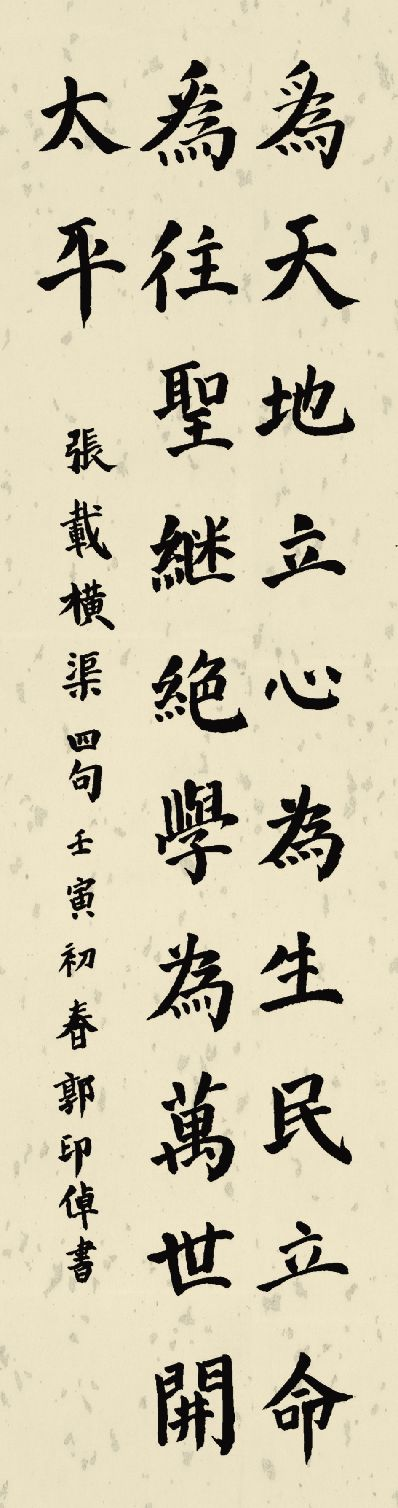 為天地立心為生民立命
為往聖継絕學為萬世開
太平
張載橫渠四句壬寅初春郭印倬書